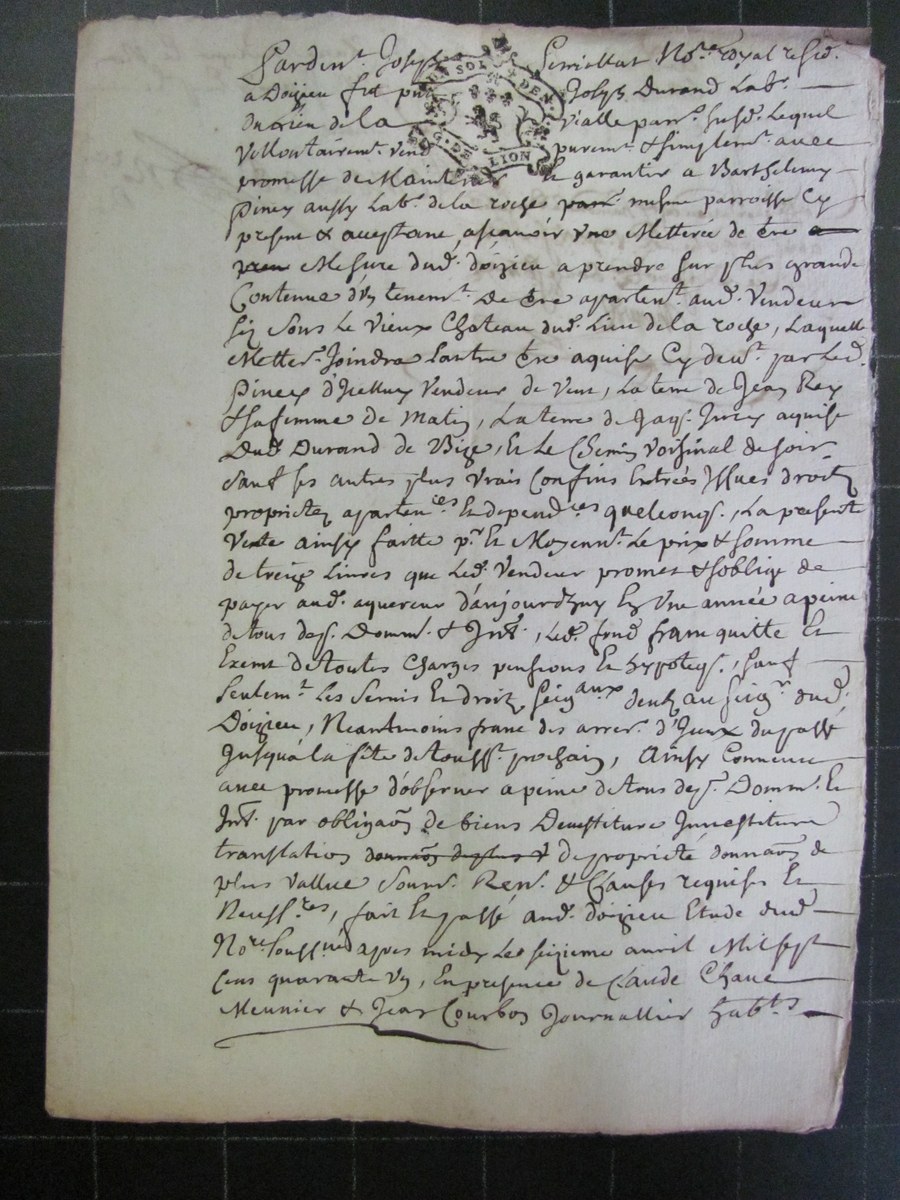 Pardev.t Joseph Perrichat No.re royal resid.t
a Doizieu fut p.nt Joseph Durand Lab.r
du lieu de la vialle parr.e susd. Lequel
Vollontairem.t vend purem.t & simplem.t avec
promesse de Mainten.r & garantir a Barthelemy
Piney aussy Lab.r de la roche parr. mesme parroisse Cy
present & acceptant, ascavoir une Metterée de tre a
pren Mesure dud. doizieu a prendre sur plus grande
Contenue d'un tenem.t de tre apartent. aud. Vendeur
siz sous le Vieux Chateau dud. Lieu de la roche, Laquelle
Metter.e Joindra Lautre tre aquise Cy dev.t par led.
Piney d'Icelluy Vendeur de Vent, La terre de Jean Rey
& sa femme de Matin, La terre de Jaq. Jurey aquise
Dud. Durand de Bize, Et Le Chemin Voisinal de soir
Sauf ses autres plus vrais Confins Entrées Issues droitz
proprietez aparten.ces Et depend.ces quelconq., La presente
Vente ainsy faitte p.r Et Moyenn.t Le prix & somme
de treize Livres que Led. Vendeur promet & soblige de
payer aud. aquereur d'aujourdhuy En Une année a peine
de tous desp. Domm. & Int., Led. fond franc quitte Et
Exemt de toutes charges pensions Et hypoteq., sauf
seulem.t Les servis Et droitz seig.aux deubz au seig.r dud.
Doizieu, Neantmoins franc des arrer. d'Iceux du passé
Jusqu'a la fête de touss.t prochain, Ainsy Convenu
avec promesse d'observer a peine de tous desp. Domm. Et
Int. par obligaõn de biens Devestiture Investiture
translation donnaõn de plus v de proprieté donnaõn de
plus vallue soum. Ren. & Clauses requises Et
Necess.res, fait Et passé aud. doizieu Etude dud.
No.re soussigné apres midy Le seizieme avril Mil sept
Cens quarante un, En presence de Claude Chave
Meunier & Jean Courbon Journallier habt.s
G. DE LION
SOL
DEN.